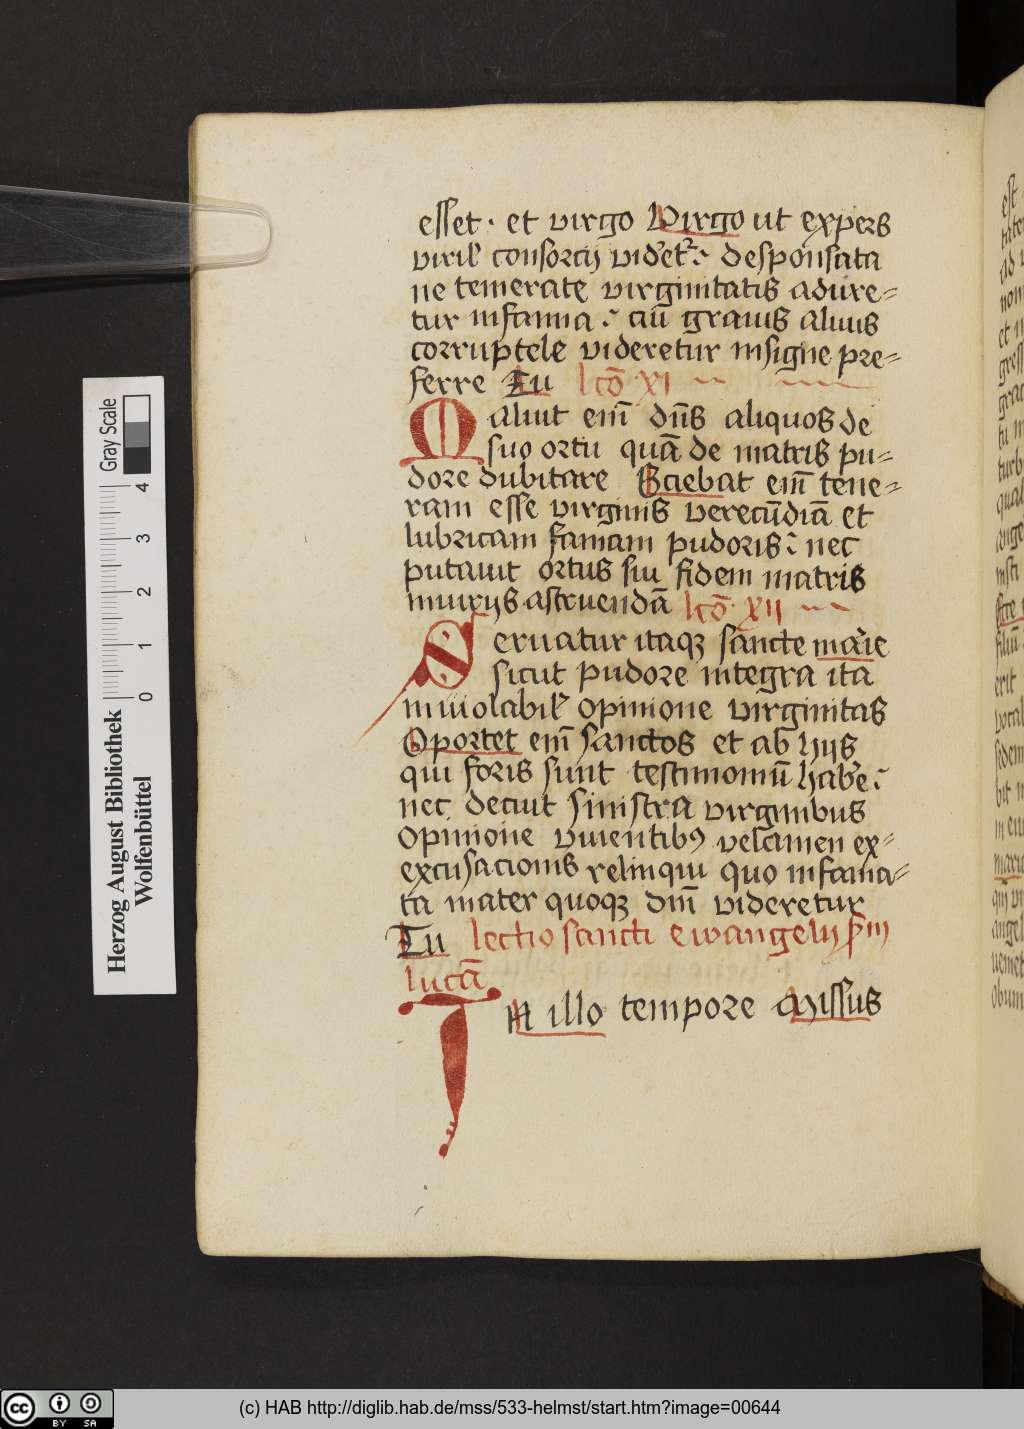 esset · et virgo Virgo ut expers
viril' consorcij videt᷑ : desponsata
ne temerate virginitatis adure=
tur infamia : cuı̄ grauis aluus
corruptele videretur insigne pre=
ferre Tu lcō XI
Maluit eı̄m dn̄s aliquos de
suo ortu quā de matris pu=
dore dubitare Sciebat eı̄m tene=
ram esse virginis verecūdiā et
lubricam famam pudoris : nec
putauit ortus sui fidem matris
iniurijs astruendā lcō XII
Seruatur itaqꝫ sancte marie
sicut pudore integra ita
inuiolabil' opinione virginitas
Oportet eı̄m sanctos et ab hijs
qui foris sunt testimoniū hab'e :
nec decuit sinistra virginibus
opinione viuentibꝰ velamen ex=
excusacionis relinqui quo infama=
ta mater quoqꝫ dnı̄ videretur
Tu lectio sancti ewangelij scd̄m
lucā
In illo tempore Missus
Herzog August Bibliothek
Wolfenbüttel
0 1 2 3 4
Gray Scale
cc BY SA
(c) HAB http://diglib.hab.de/mss/533-helmst/start.htm?image=00644